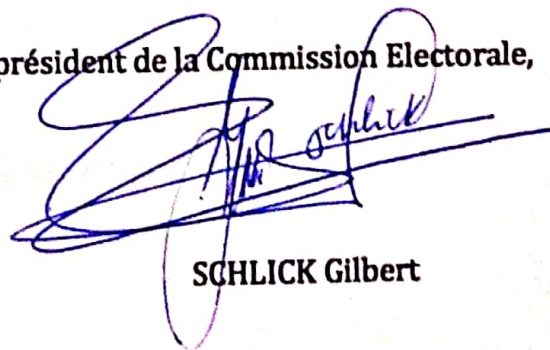 président de la Commission Electorale,
schlick
SCHLICK Gilbert